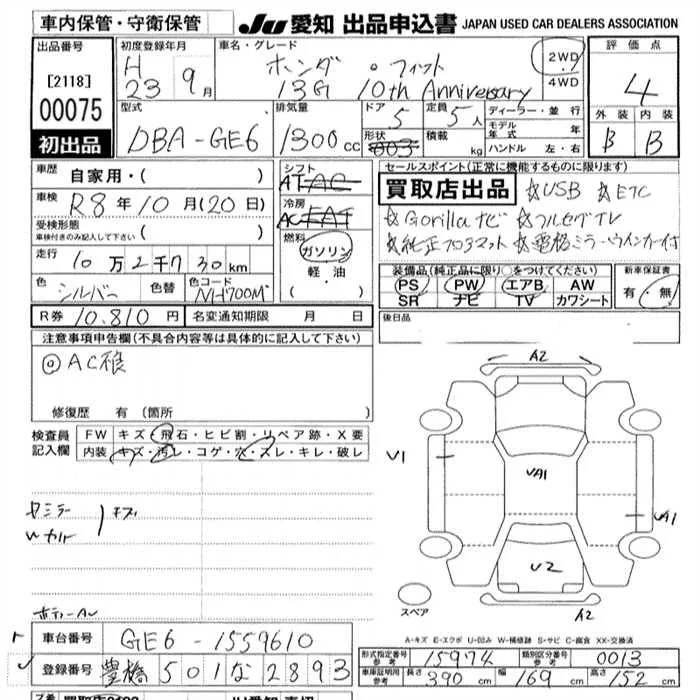 車内保管・守衛保管 JU 愛知 出品申込書 JAPAN USED CAR DEALERS ASSOCIATION
出品番号
[2118]
00075
初出品
初度登録年月
H 23 9月
車名・グレード
ホンダ ・ フィット
13G 10th Anniversary
2WD
4WD
評価点
4
外装 内装
B B
型式
DBA-GE6
排気量
1300cc
ドア 5
定員 5人
形状 003
積載 kg
ディーラー・並行
モデル年式 年
ハンドル 左・右
車歴
自家用・( )
車検
R8年10月(20日)
受検形態
車検付きのみ記入して下さい ( )
走行
10万2千730km
色 シルバー 色替 色コード NH700M
シフト
AT AC
冷房
AC FAT
燃料
ガソリン
軽・油
( ・ )
セールスポイント(正常に機能するものに限ります)
買取店出品 ☆USB ☆ETC
☆Gorillaナビ ☆フルセグTV
☆純正フロアマット ☆電格ミラーウインカー付
装備品(純正品に限り○をつけてください)
PS PW エアB AW
SR ナビ TV カワシート
新車保証書
有・無
R券 10.810円 名変通知期限 月 日
後日品
注意事項申告欄(不具合内容等は具体的に記入して下さい)
◎AC
修復歴 有 (箇所
検査員記入欄
FW キズ・飛石・ヒビ割・リペア跡・X要
内装 キズ・汚レ・コゲ・穴・スレ・キレ・破レ
A2
V1
VA1
VA1
U2
A2
スペア
A-キズ E-エクボ U-凹み W-補修跡 S-サビ C-腐食 XX-交換済
車台番号 GE6-1559610
登録番号 豊橋 501 な 2893
形式指定番号 参考 15974
類別区分番号 参考 0013
車庫証明用 参考 長さ 390cm 幅 169cm 高さ 152cm